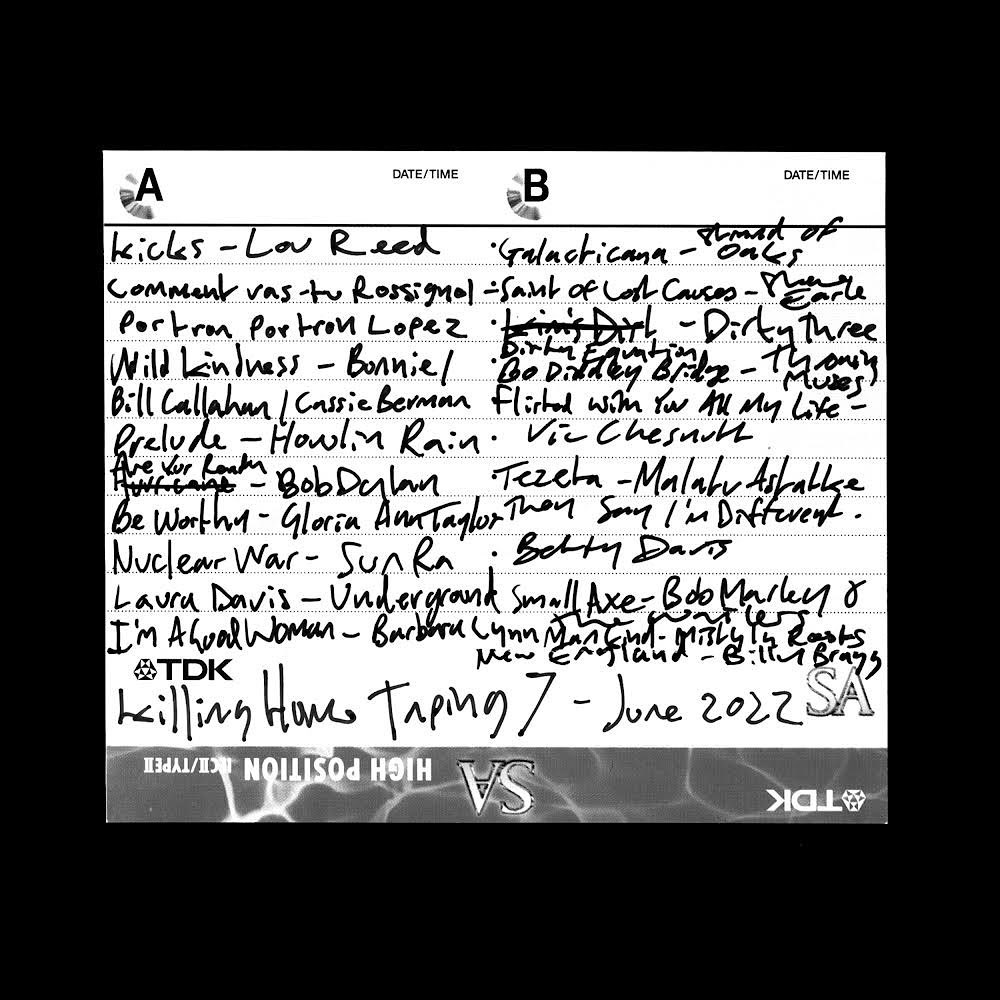 A
DATE/TIME
Kicks - Lou Reed
Comment vas-tu Rossignol -
Portron Portron Lopez
Wild Kindness - Bonnie /
Bill Callahan / Cassie Berman
Prelude - Howlin Rain
Are You Ready
Hurricane - Bob Dylan
Be Worthy - Gloria Ann Taylor
Nuclear War - Sun Ra
Laura Davis - Underground
I'm A Good Woman - Barbara Lynn
B
DATE/TIME
Galacticana - Strand of
Oaks
Saint of Lost Causes -
Earle
Kim's Dirt - Dirty Three
Dirty Equation
Bo Diddley Bridge - Throwing
Muses
Flirted with You All My Life -
Vic Chesnutt
Tezeta - Mulatu Astatke
They Say I'm Different.
Betty Davis
Small Axe - Bob Marley &
The Wailers
Mankind - Misty In Roots
New England - Billy Bragg
TDK
SA
Killing Home Taping 7 - June 2022
HIGH POSITION IECII/TYPEII
SA
TDK